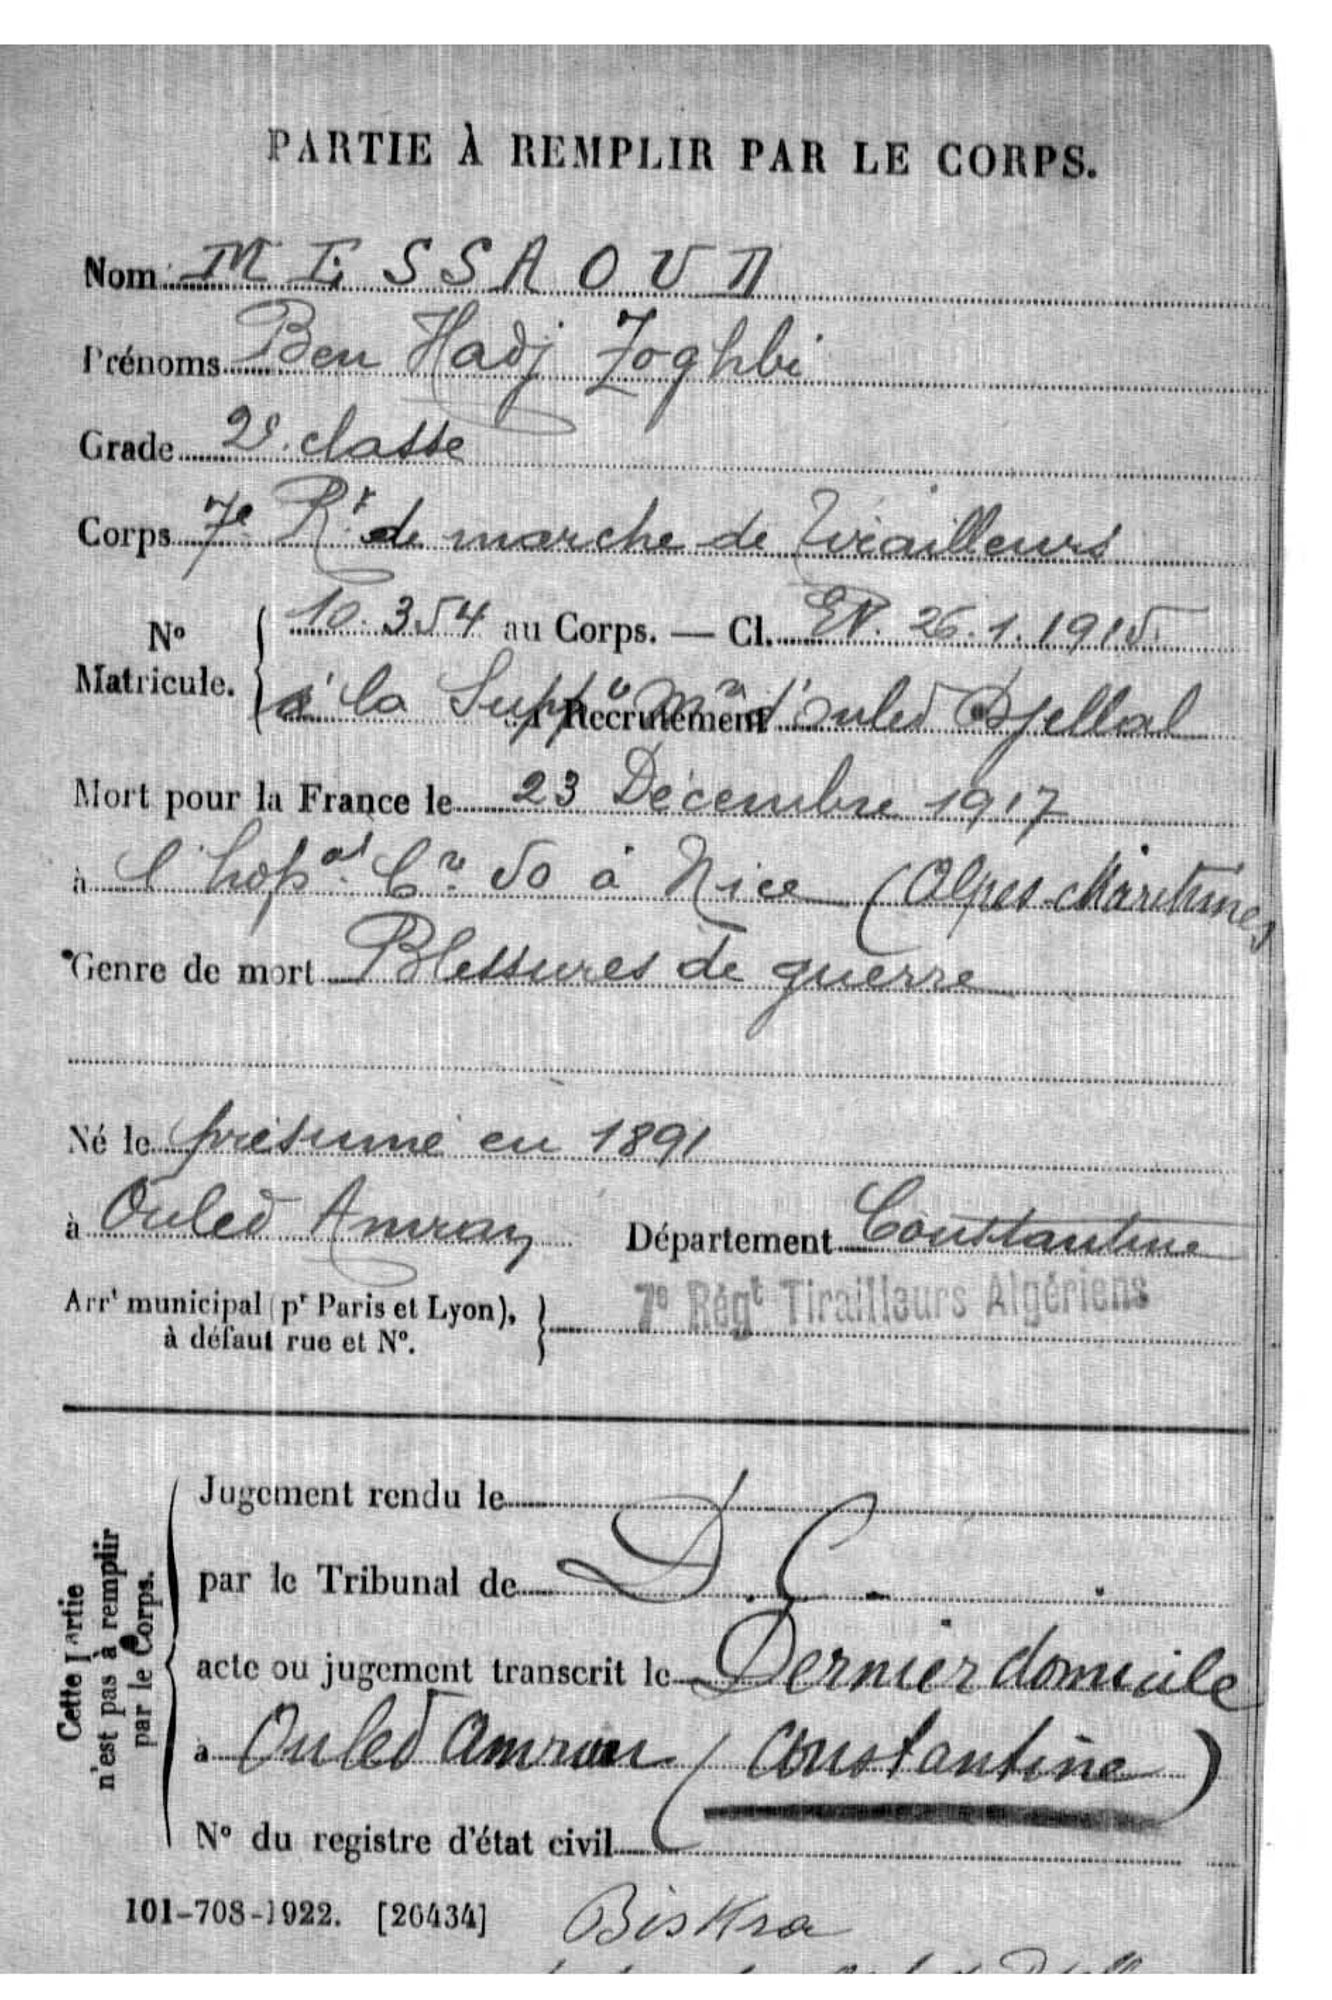 PARTIE À REMPLIR PAR LE CORPS.
Nom MESSAOUD
Prénoms Ben Hadj Zoghbi
Grade 2e. classe
Corps 7e Rt de marche de Tirailleurs
N° Matricule. { 10.354 au Corps. — Cl. EV. 26.1.1915.
à la Suppon Mre d'Ouled Djellal Recrutement
Mort pour la France le 23 Décembre 1917
à l'hopal Cre 50 à Nice (Alpes-Maritimes)
Genre de mort Blessures de guerre
Né le présumé en 1891
à Ouled Amran Département Constantine
Arrt municipal (pr Paris et Lyon), à défaut rue et N°. }
7e Régt Tirailleurs Algériens
Cette partie n'est pas à remplir par le Corps.
Jugement rendu le
par le Tribunal de D.C.
acte ou jugement transcrit le Dernier domicile
à Ouled Amran (Constantine)
N° du registre d'état civil
101-708-1922. [26434] Biskra